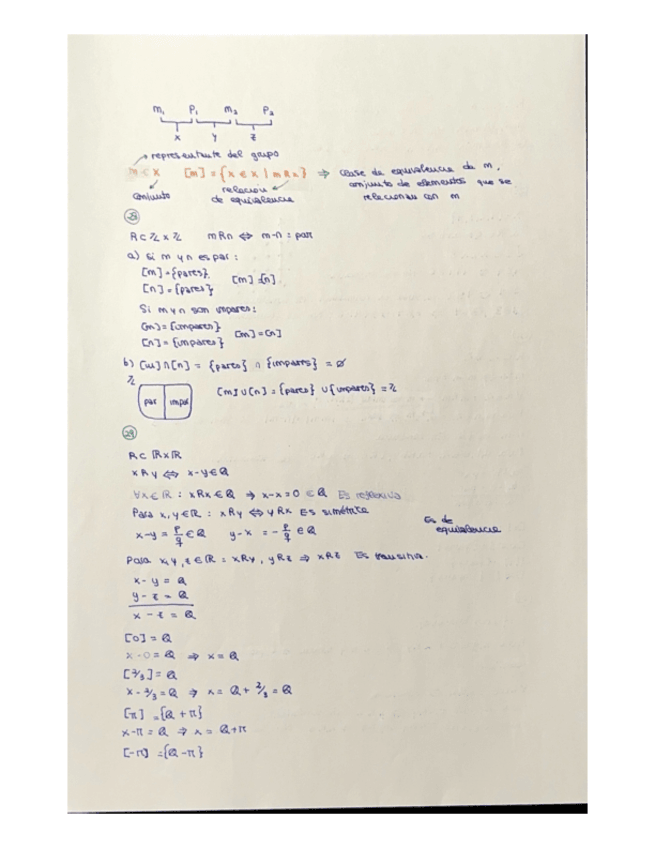 m₁ p₁ m₂ p₂
x y z
representante del grupo
m ∈ X [m] = {x ∈ X | m R x} ⇒ Clase de equivalencia de m,
conjunto de elementos que se
relacionan con m
conjunto relación
de equivalencia
R ⊂ ℤ x ℤ m R n ⇔ m-n = par
a) Si m y n es par:
[m] = {pares}
[n] = {pares} [m] = [n]
Si m y n son impares:
[m] = {impares}
[n] = {impares} [m] = [n]
b) [m] ∩ [n] = {pares} ∩ {impares} = ∅
ℤ
par impar [m] ∪ [n] = {pares} ∪ {impares} = ℤ
29
R ⊂ ℝ x ℝ
x R y ⇔ x-y ∈ ℚ
∀x ∈ ℝ : x R x ∈ ℚ ⇒ x-x = 0 ∈ ℚ Es reflexiva
Para x, y ∈ ℝ : x R y ⇔ y R x Es simétrica
x-y = p/q ∈ ℚ y-x = -p/q ∈ ℚ
Es de
equivalencia
Para x, y, z ∈ ℝ = x R y, y R z ⇒ x R z Es transitiva.
x - y = ℚ
y - z = ℚ
x - z = ℚ
[0] = ℚ
x - 0 = ℚ ⇒ x = ℚ
[2/3] = ℚ
x - 2/3 = ℚ ⇒ x = ℚ + 2/3 = ℚ
[π] = {ℚ + π}
x - π = ℚ ⇒ x = ℚ + π
[-π] = {ℚ - π}